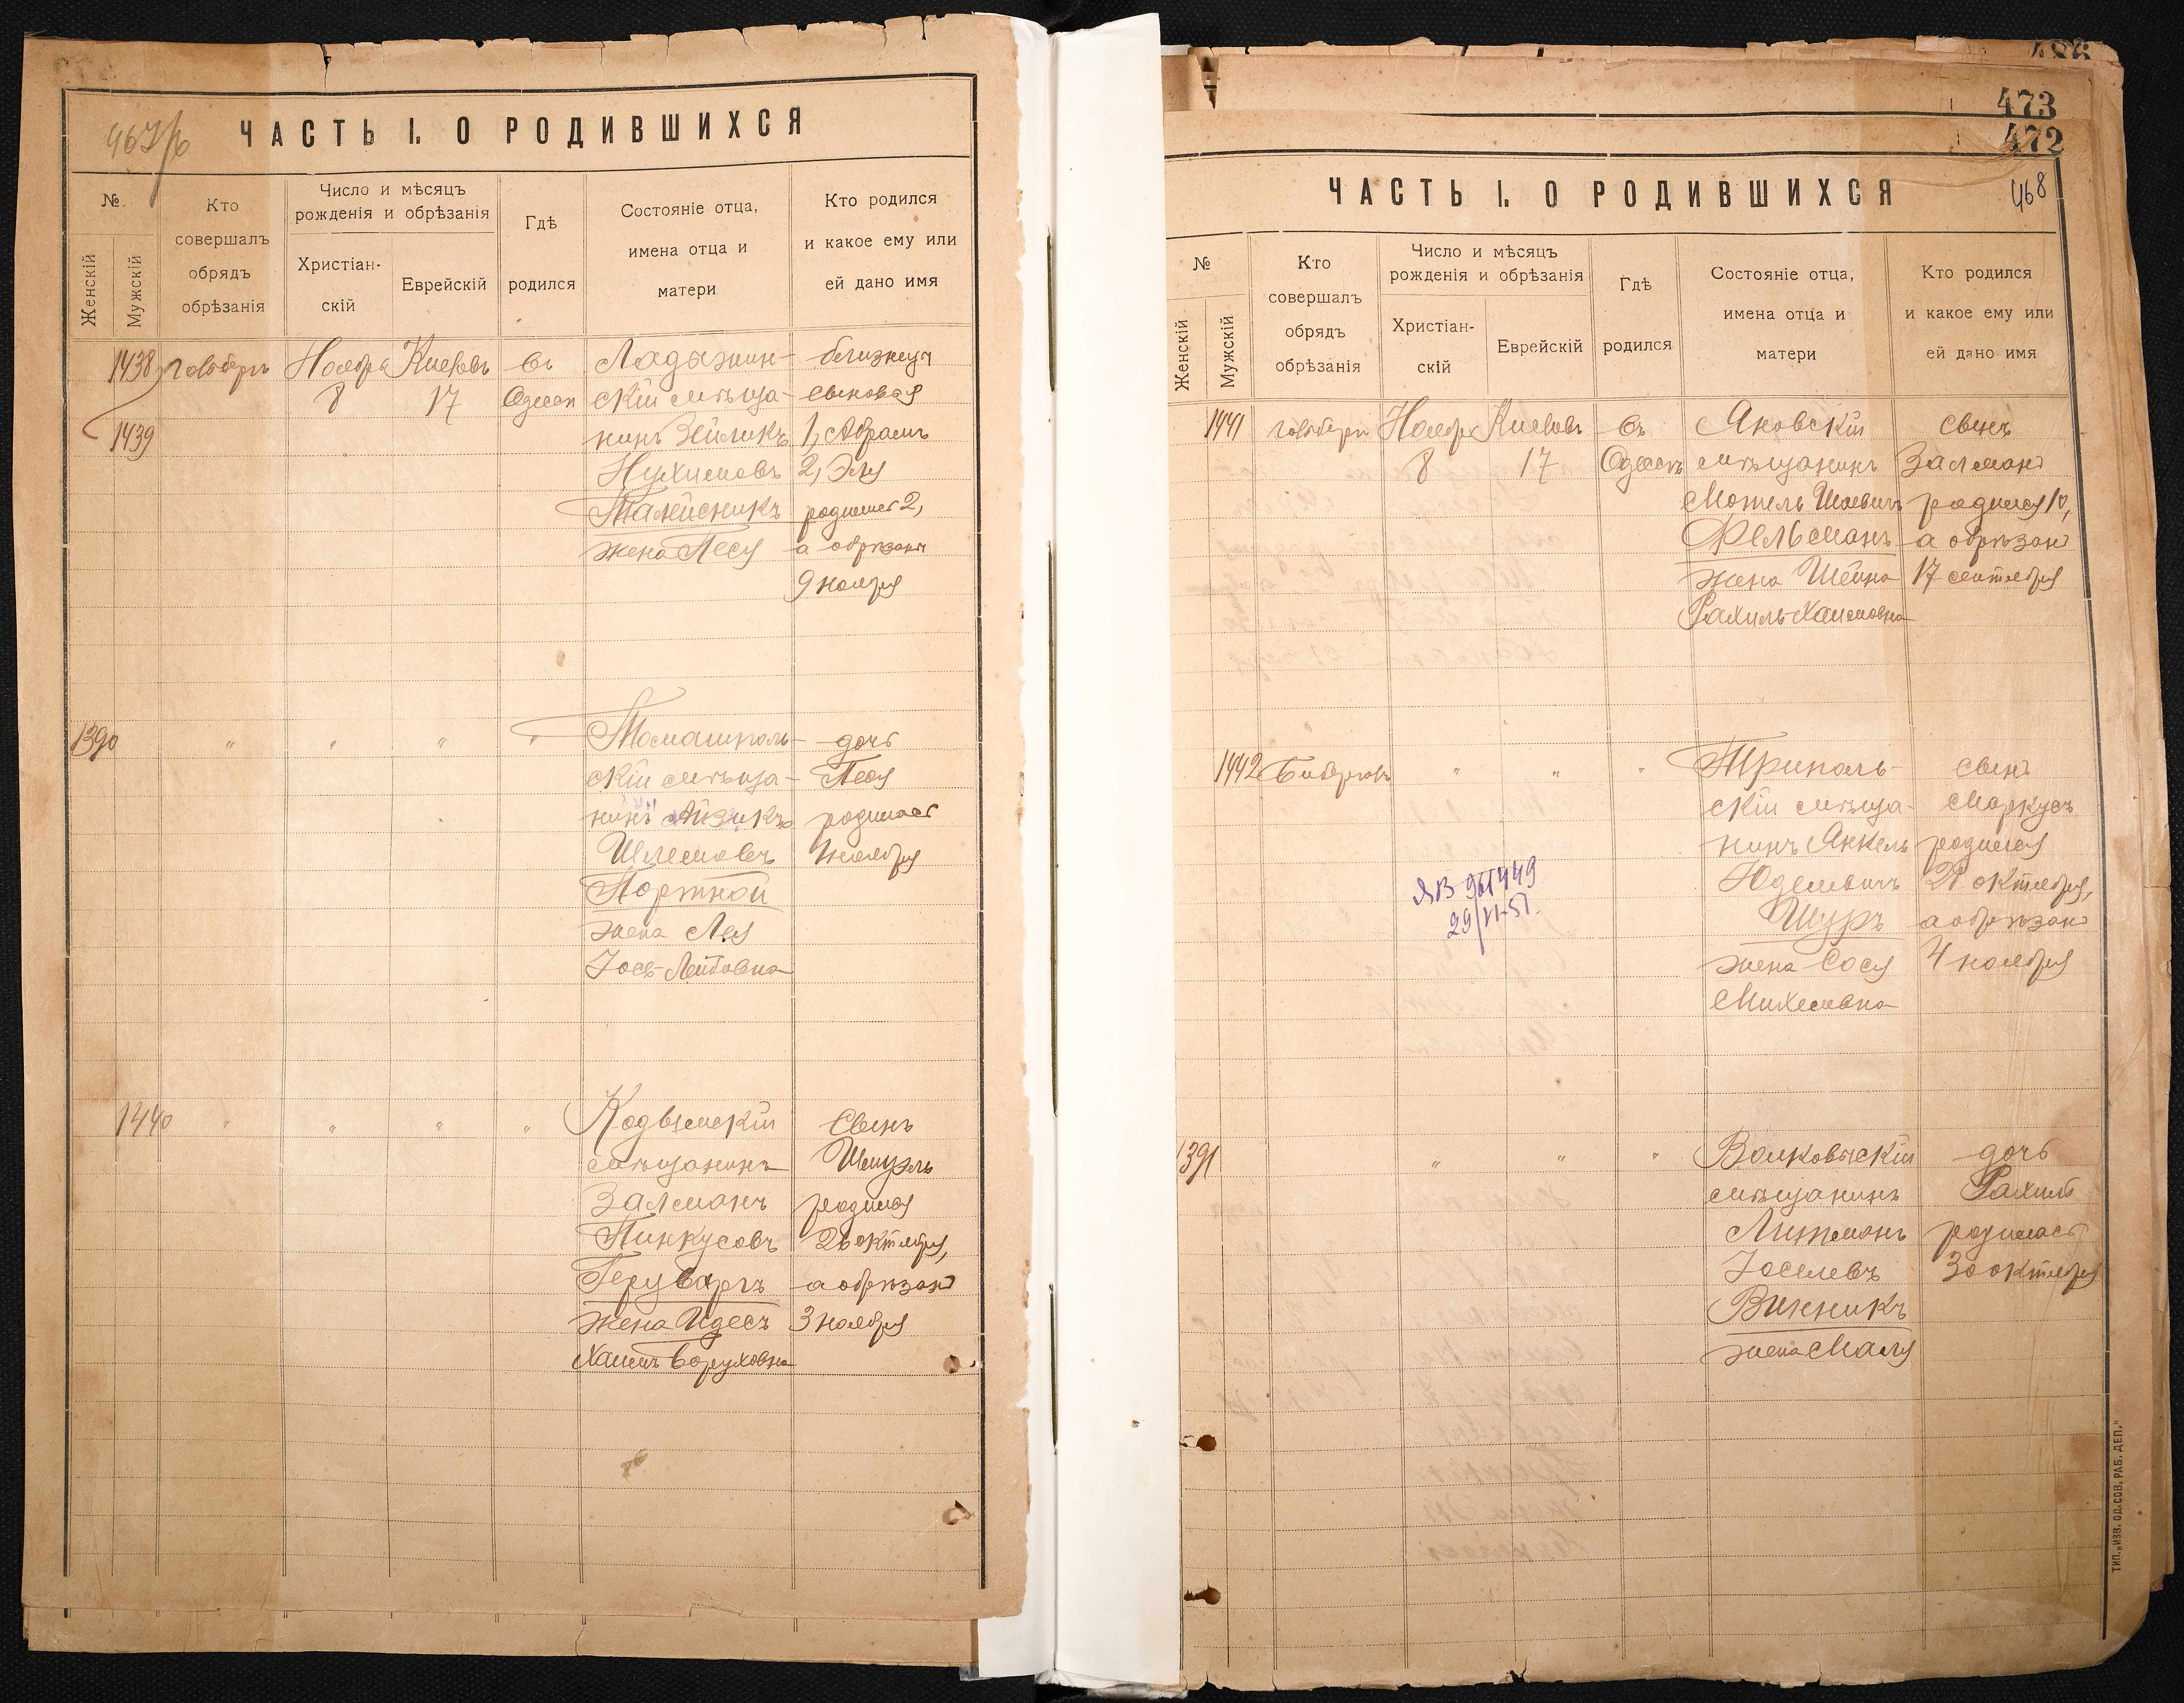 ЧАСТЬ I. О РОДИВШИХСЯ
№
Женскій
Мужскій
Кто
совершалъ
обрядъ
обрѣзанія
Число и мѣсяцъ
рожденія и обрѣзанія
Христіан-
скій
Еврейскій
Гдѣ
родился
Состояніе отца,
имена отца и
матери
Кто родился
и какое ему или
ей дано имя
1438
1439
Ноября
8
Кислевъ
17
въ
Одессѣ
Ладыжин-
скій мѣща-
нинъ Зейликъ
Нухимовъ
Талейсникъ
жена Песя
близнецы
сыновья
1, Абрамъ
2, Эля
родились 2,
а обрѣзаны
9 ноября
1390
"
"
"
"
Томашполь-
скій мѣща-
нинъ Айзикъ
Шлемовъ
Портной
жена Лея
Іось-Лейбовна
дочь
Песя
родилась
1 ноября
1440
"
"
"
"
Кодымскій
мѣщанинъ
Залманъ
Пинкусовъ
жена Идесъ
Боруховна
Сынъ
Шмуэль
родился
26 октября,
а обрѣзанъ
3 ноября
486
473
472
468
ЧАСТЬ I. О РОДИВШИХСЯ
№
Женскій
Мужскій
Кто
совершалъ
обрядъ
обрѣзанія
Число и мѣсяцъ
рожденія и обрѣзанія
Христіан-
скій
Еврейскій
Гдѣ
родился
Состояніе отца,
имена отца и
матери
Кто родился
и какое ему или
ей дано имя
1441
Ноября
8
Кислевъ
17
въ
Одессѣ
Яновскій
мѣщанинъ
Мотель
Фельдманъ
жена Шейна
Рахиль Хаимовна
сынъ
Залманъ
родился 10,
а обрѣзанъ
17 сентября
1442
"
"
"
Триполь-
скій мѣща-
нинъ Янкель
Юделевичъ
Шуръ
жена Сося
Михелевна
сынъ
Маркусъ
родился
октября,
а обрѣзанъ
4 ноября
ЯВ 961449
29/VI-51.
1391
"
"
"
Волковыскій
мѣщанинъ
Литманъ
Іоселевъ
Винникъ
жена Маля
дочь
Рахиль
родилась
30 октября
ТИП. „ИЗВ. ОД. СОВ. РАБ. ДЕП."